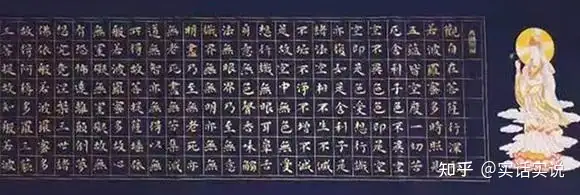 觀自在菩薩行深般
若波羅蜜多時照見
五蘊皆空度一切苦
厄舍利子色不異空
空不異色色即是空
空即是色受想行識
亦復如是舍利子是
諸法空相不生不滅
不垢不淨不增不減
是故空中無色無受
想行識無眼耳鼻舌
身意無色聲香味觸
法無眼界乃至無意
識界無無明亦無無
明盡乃至無老死亦
無老死盡無苦集滅
道無智亦無得以無
所得故菩提薩埵依
般若波羅蜜多故心
無罣礙無罣礙故無
有恐怖遠離顛倒夢
想究竟涅槃三世諸
佛依般若波羅蜜多
故得阿耨多羅三藐
三菩提故知般若波
知乎 @实话实说